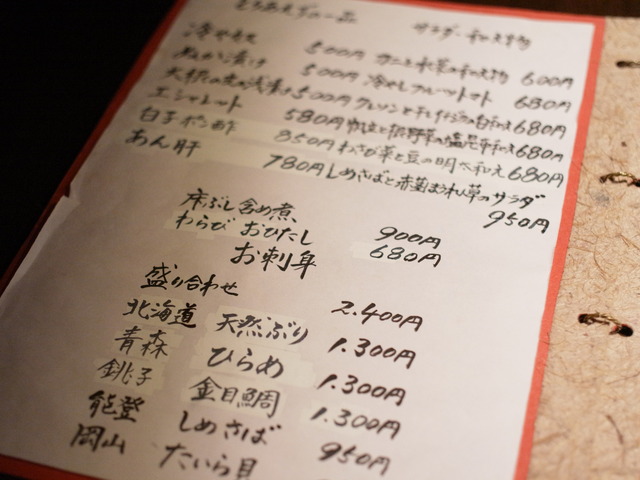 とりあえずの一品
サラダ・和え物
冷やしトマト 500円
カニと水菜の和え物 600円
ぬか漬け 500円
冷やしフルーツトマト 680円
大根の皮の浅漬け 500円
クレソンと干しイチジクの白和え 680円
エシャレット 580円
根野菜の塩昆布和え 680円
白子ポン酢 850円
わさび菜と豆の明太和え 680円
あん肝 780円
しめさばと赤茎ほうれん草のサラダ 950円
床ぶし含め煮 900円
わらび おひたし 680円
お刺身
盛り合わせ 2.400円
北海道 天然ぶり 1.300円
青森 ひらめ 1.300円
銚子 金目鯛 1.300円
能登 しめさば 950円
岡山 たいら貝